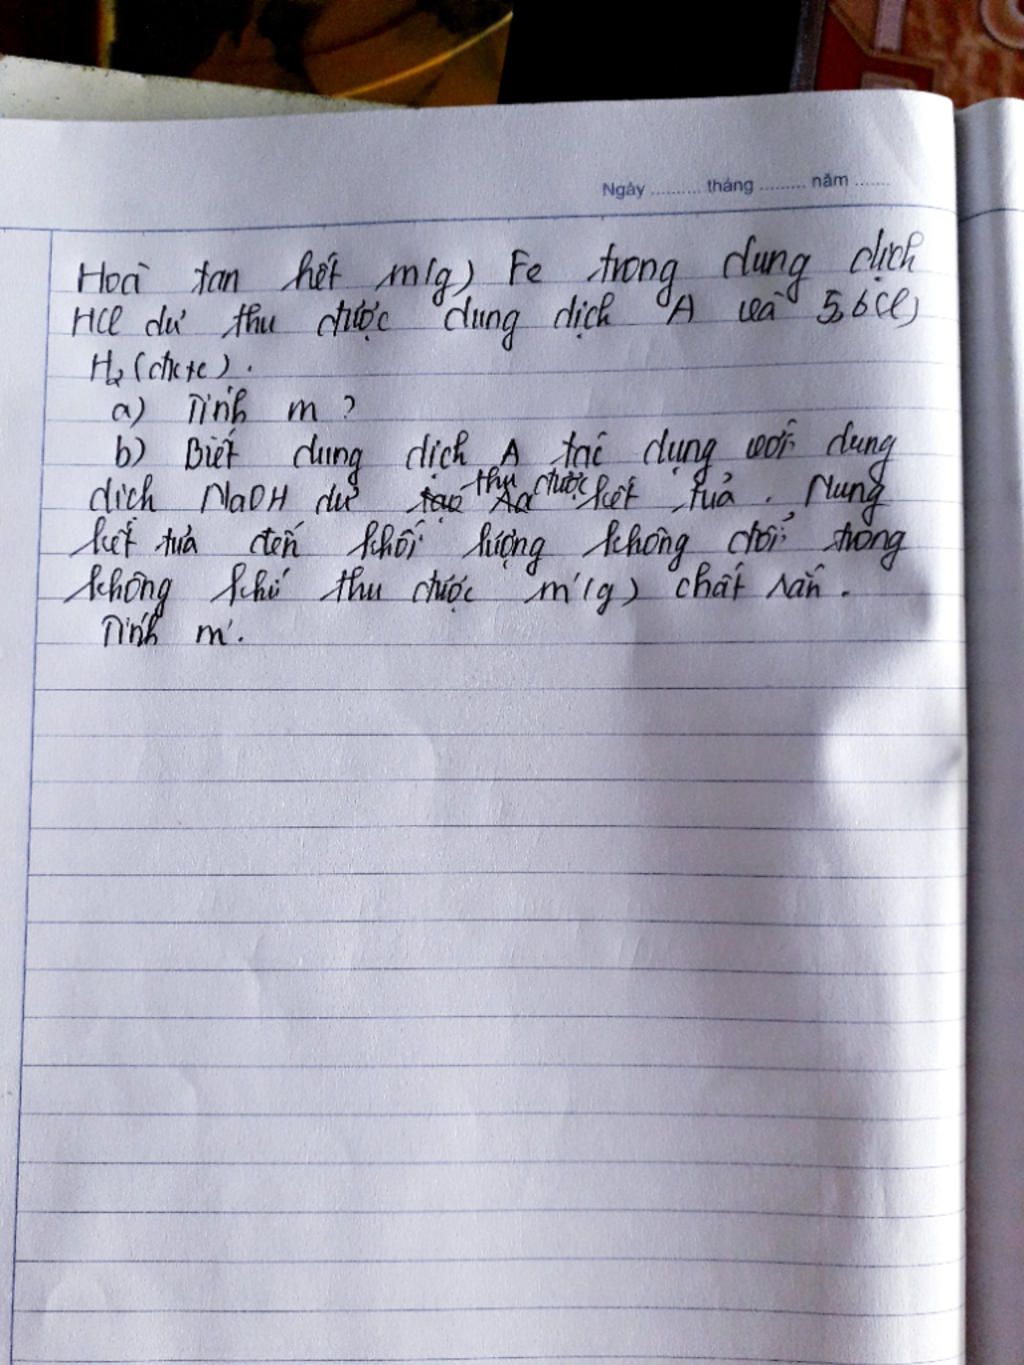 Ngày .......... tháng ......... năm .......
Hoà tan hết m(g) Fe trong dung dịch
HCl dư thu được dung dịch A và 5,6(l)
H₂ (đktc).
a) Tính m?
b) Biết dung dịch A tác dụng với dung
dịch NaOH dư thu được kết tủa. Nung
kết tủa đến khối lượng không đổi trong
không khí thu được m'(g) chất rắn.
Tính m'.